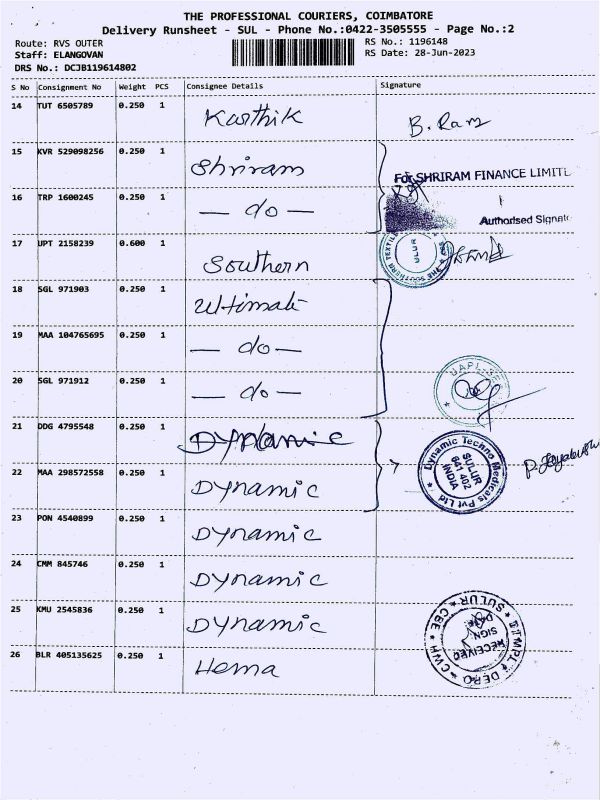 THE PROFESSIONAL COURIERS, COIMBATORE
Delivery Runsheet - SUL - Phone No.:0422-3505555 - Page No.:2
Route: RVS OUTER
Staff: ELANGOVAN
DRS No.: DCJB119614802
RS No.: 1196148
RS Date: 28-Jun-2023
S No Consignment No Weight PCS Consignee Details Signature
14 TUT 6505789 0.250 1 Karthik B. Ram
15 KVR 529098256 0.250 1 Shriram For SHRIRAM FINANCE LIMITE
16 TRP 1600245 0.250 1 — do — Authorised Signato
17 UPT 2158239 0.600 1 Southern THE SOUTHERN TEXTILE SULUR
18 SGL 971903 0.250 1 Ultimate
19 MAA 104765695 0.250 1 — do —
20 SGL 971912 0.250 1 — do — UAPL-SE
21 DDG 4795548 0.250 1 Dynamic
22 MAA 298572558 0.250 1 Dynamic Dynamic Techno Medicals Pvt Ltd SULUR 641 402 INDIA
23 PON 4540899 0.250 1 Dynamic
24 CMM 845746 0.250 1 Dynamic
25 KMU 2545836 0.250 1 Dynamic
26 BLR 405135625 0.250 1 Hema DTMPL DERO CWH CBE SULUR RECEIVED SIGN. DATE